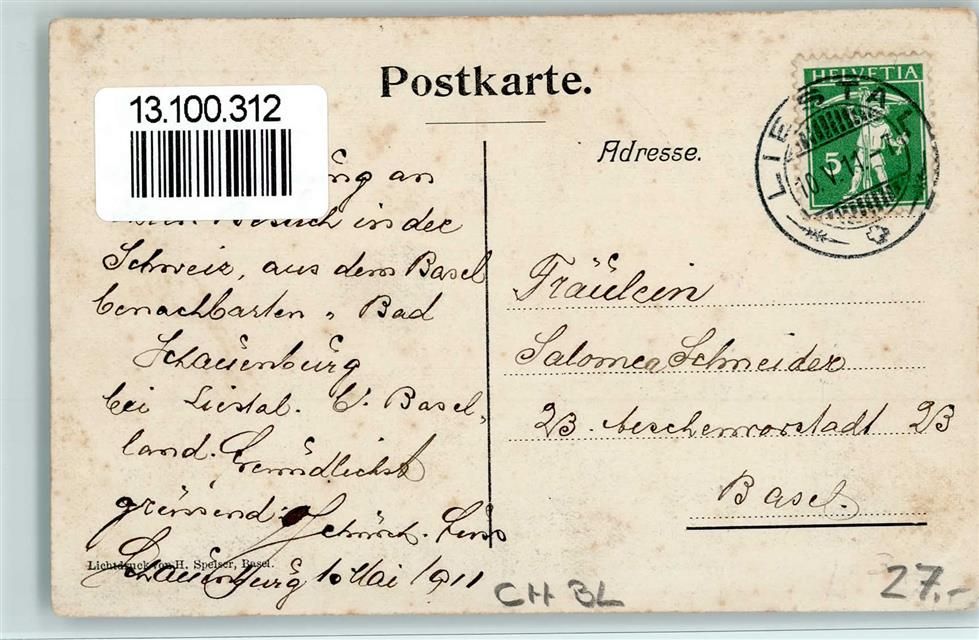 Postkarte.
13.100.312
HELVETIA
5
LIESTAL
10.V.11
Adresse.
ung an
Besuch in der
Schweiz, aus dem Basel
benachbarten " Bad
Schauenburg
bei Liestal. Ct. Basel-
land. Freundlichst
grüssend:
Schauenburg 10 Mai 1911
Lichtdruck von H. Speiser, Basel.
Fräulein
Salomea Schneider
23. Aeschenvorstadt 23
Basel.
CH BL
27.-